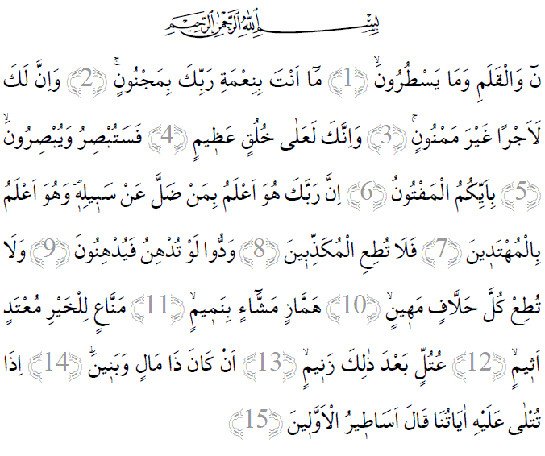 بِسْمِ اللّٰهِ الرَّحْمٰنِ الرَّحِيمِ
نٓ وَالْقَلَمِ وَمَا يَسْطُرُونَۙ ﴿1﴾ مَٓا اَنْتَ بِنِعْمَةِ رَبِّكَ بِمَجْنُونٍۚ ﴿2﴾ وَاِنَّ لَكَ
لَاَجْرًا غَيْرَ مَمْنُونٍۚ ﴿3﴾ وَاِنَّكَ لَعَلٰى خُلُقٍ عَظ۪يمٍ ﴿4﴾ فَسَتُبْصِرُ وَيُبْصِرُونَۙ
﴿5﴾ بِاَيِّكُمُ الْمَفْتُونُ ﴿6﴾ اِنَّ رَبَّكَ هُوَ اَعْلَمُ بِمَنْ ضَلَّ عَنْ سَب۪يلِه۪ۖ وَهُوَ اَعْلَمُ
بِالْمُهْتَد۪ينَ ﴿7﴾ فَلَا تُطِعِ الْمُكَذِّب۪ينَ ﴿8﴾ وَدُّوا لَوْ تُدْهِنُ فَيُدْهِنُونَ ﴿9﴾ وَلَا
تُطِعْ كُلَّ حَلَّافٍ مَه۪ينٍۙ ﴿10﴾ هَمَّازٍ مَشَّٓاءٍ بِنَم۪يمٍۙ ﴿11﴾ مَنَّاعٍ لِلْخَيْرِ مُعْتَدٍ
اَث۪يمٍۙ ﴿12﴾ عُتُلٍّ بَعْدَ ذٰلِكَ زَن۪يمٍۙ ﴿13﴾ اَنْ كَانَ ذَا مَالٍ وَبَن۪ينَۜ ﴿14﴾ اِذَا
تُتْلٰى عَلَيْهِ اٰيَاتُنَا قَالَ اَسَاط۪يرُ الْاَوَّل۪ينَ ﴿15﴾